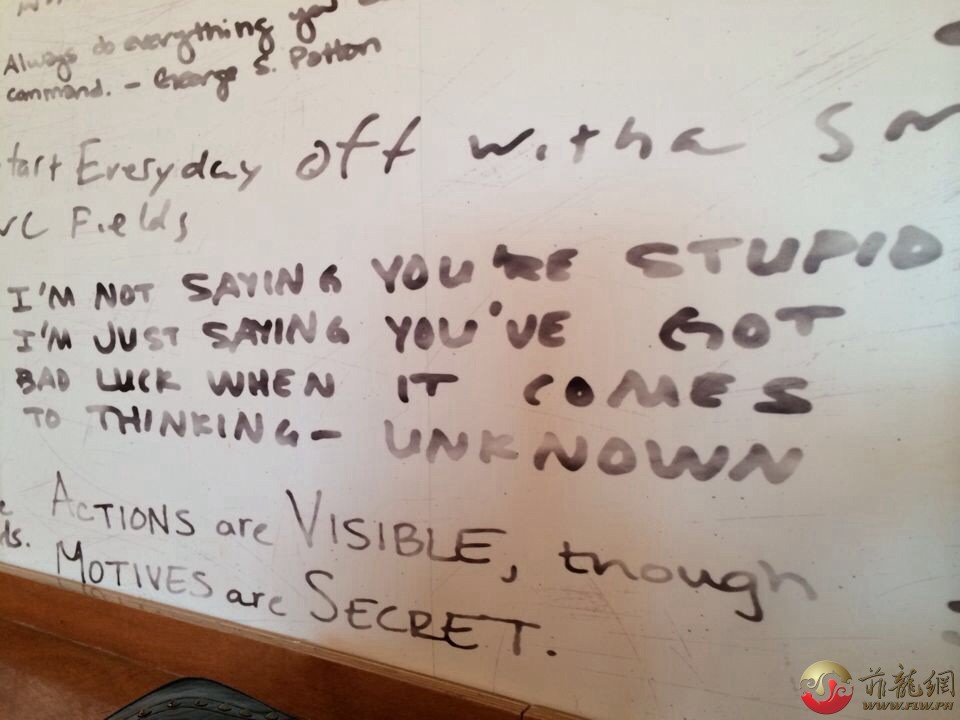 Always do everything you
command. - George S. Patton
tart Everyday off with a Sm
WC Fields
I'M NOT SAYING YOU'RE STUPID
I'M JUST SAYING YOU'VE GOT
BAD LUCK WHEN IT COMES
TO THINKING - UNKNOWN
ACTIONS are VISIBLE, though
ds.
MOTIVES are SECRET.
菲龍網
WWW.FLW.PH